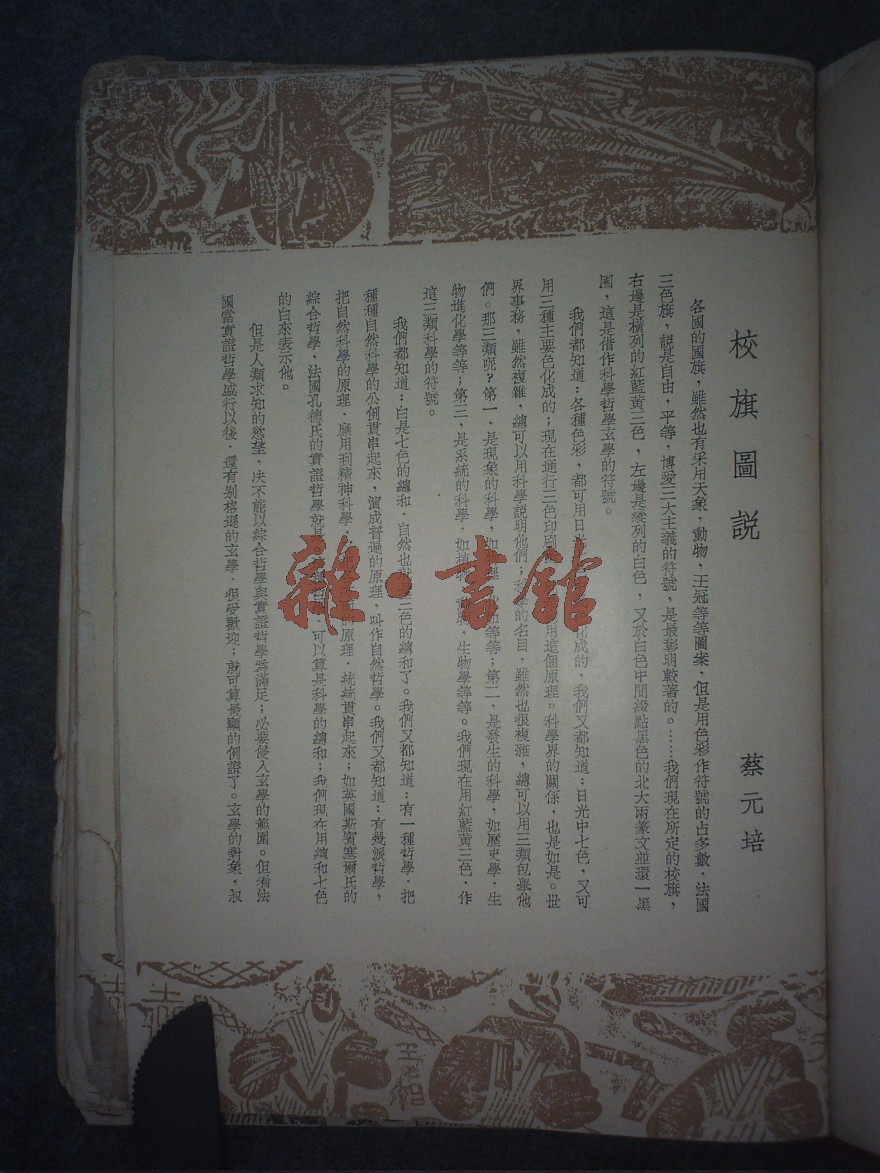 校旗圖説
蔡元培
各國的國旗，雖然也有采用天象，動物，王冠等等圖案，但是用色彩作符號的占多數，法國
三色旗，説是自由，平等，博愛三大主義的符號，是最彰明較著的。……我們現在所定的校旗，
右邊是橫列的紅藍黃三色，左邊是縱列的白色，又於白色中間綴點黑色的北大兩篆文並環一黑
圈，這是借作科學哲學玄學的符號。
我們都知道：各種色彩，都可用日光 化成的，我們又都知道：日光中七色，又可
用三種主要色化成的；現在通行三色印刷 用這個原理。科學界的關係，也是如是。世
界事務，雖然複雜，總可以用科學説明他們；科學的名目，雖然也很複雜，總可以用三類包舉他
們。那三類呢？第一，是現象的科學，如物理 等等；第二，是發生的科學，如歷史學，生
物進化學等等；第三，是系統的科學，如植物 生物學等等。我們現在用紅藍黃三色，作
這三類科學的符號。
我們都知道：白是七色的總和，自然也 三色的總和了。我們又都知道：有一種哲學，把
種種自然科學的公例貫串起來，演成普遍的原理，叫作自然哲學。我們又都知道：有幾派哲學，
把自然科學的原理，應用到精神科學， 原理，統統貫串起來；如英國斯賓塞爾氏的
綜合哲學，法國孔德氏的實證哲學就是 可以算是科學的總和；我們現在用總和七色
的白來表示他。
但是人類求知的慾望，决不能以綜合哲學與實證哲學爲滿足；必要侵入玄學的範圍。但看法
國當實證哲學盛行以後，還有别格遜的玄學，很受歡迎；就可算最顯的例證了。玄學的對象，叔
雜·書館